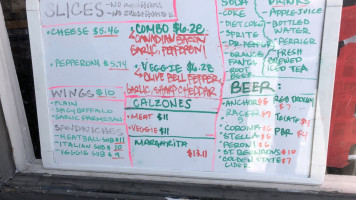 SLICES
CHEESE $5.46
PEPPERONI $5.74
WINGS $10
PLAIN
BUFFALO
GARLIC PARMESAN
SANDWICHES
MEATBALL SUB $11
ITALIAN SUB $10
VEGGIE SUB $9
COMBO $6.28
CANADIAN BACON
GARLIC, PEPPERONI
VEGGIE $6.28
OLIVE BELL PEPPER
GARLIC, SHARP CHEDDAR
CALZONES
MEAT $11
VEGGIE $11
MARGARITA
SODA
COKE
DIET COKE
SPRITE
DR PEPPER
ORANGE
FANTA
ROOT
BEER
DRINKS
APPLE JUICE
BOTTLED
WATER
PERRIER
FRESH
BREWED
ICED TEA
BEER:
ANCHOR $8
RACER
CORONA
STELLA
PERONI $6
GOLDEN STATE
CIDER $7
TECATE
PBR